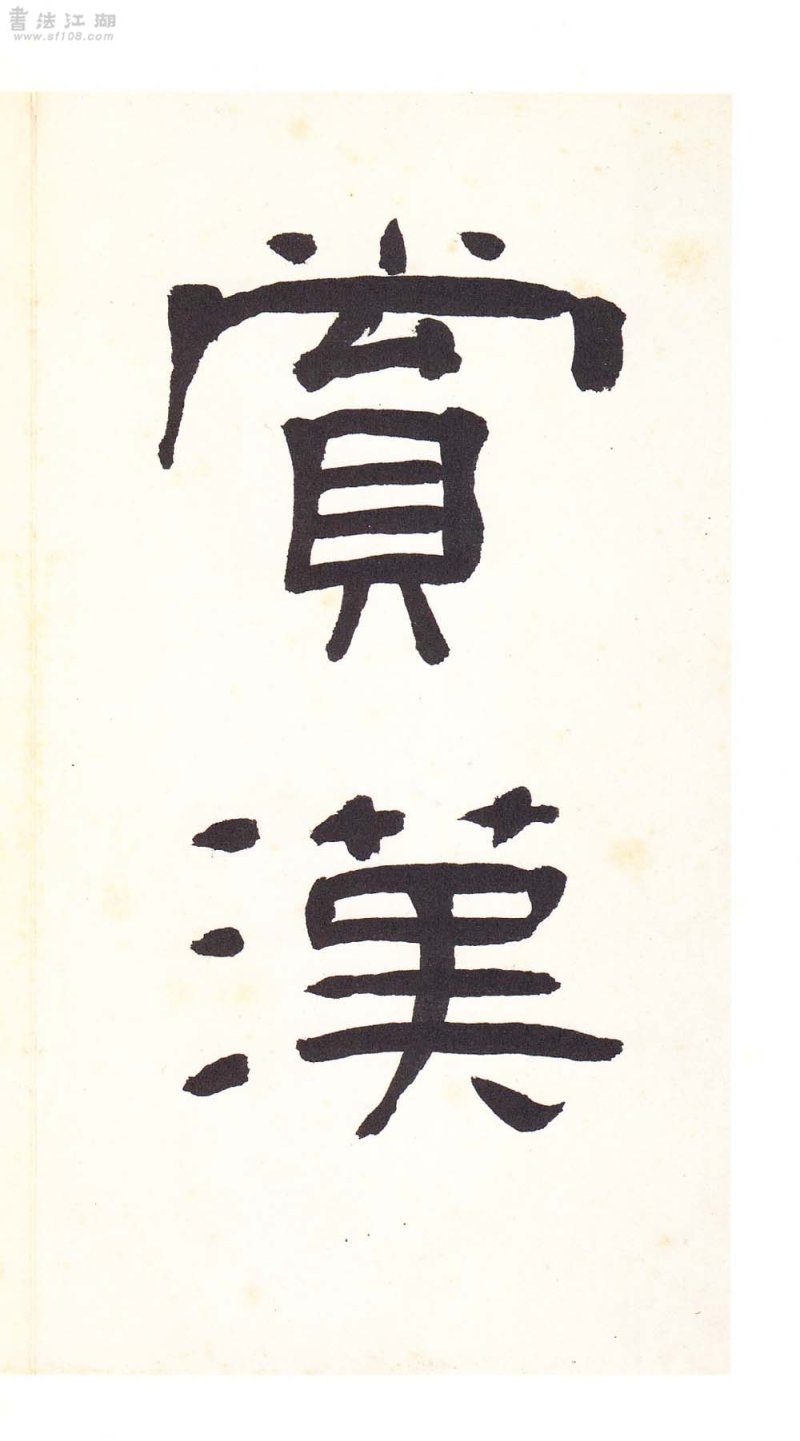 書法江湖
www.sf108.com
賞
漢